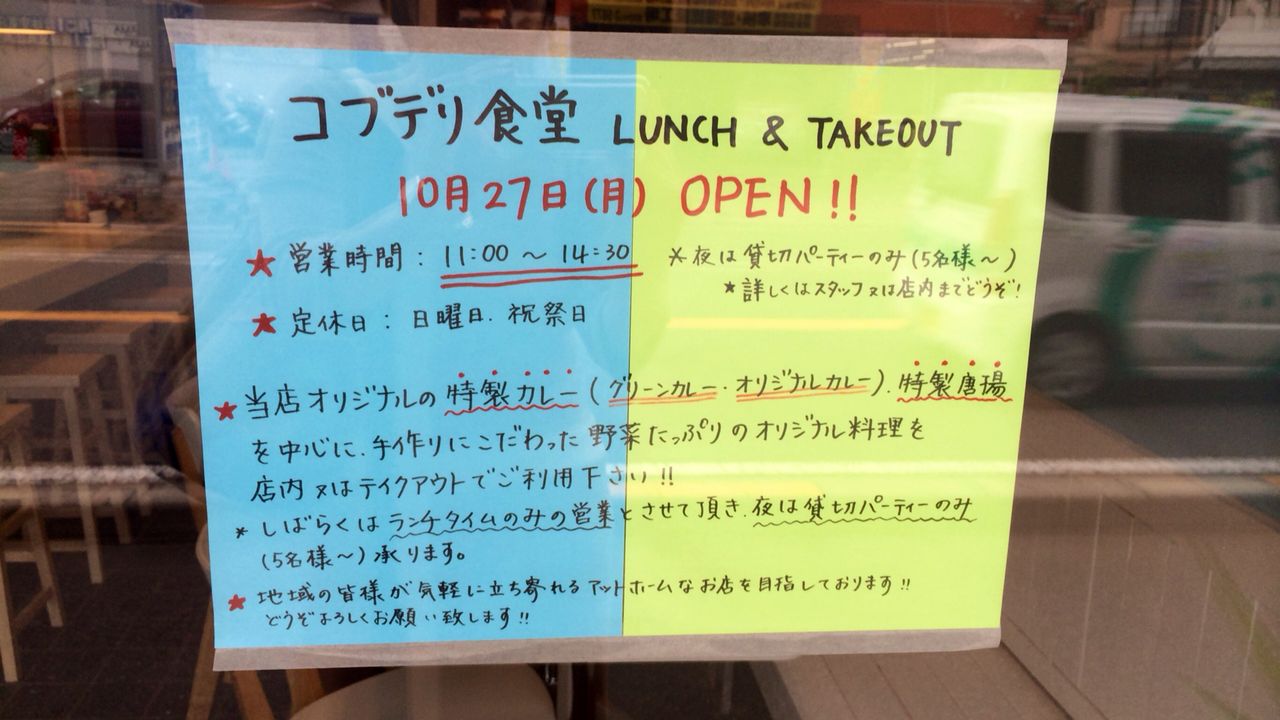 コブデリ食堂 LUNCH & TAKEOUT
10月27日(月) OPEN!!
★ 営業時間 : 11:00 ~ 14:30
※夜は貸切パーティーのみ(5名様~)
★詳しくはスタッフ又は店内までどうぞ!
★ 定休日 : 日曜日. 祝祭日
★ 当店オリジナルの特製カレー(グリーンカレー・オリジナルカレー). 特製唐揚
を中心に. 手作りにこだわった野菜たっぷりのオリジナル料理を
店内又はテイクアウトでご利用下さい!!
* しばらくはランチタイムのみの営業とさせて頂き. 夜は貸切パーティーのみ
(5名様~)承ります。
★ 地域の皆様が気軽に立ち寄れるアットホームなお店を目指しております!!
どうぞよろしくお願い致します!!